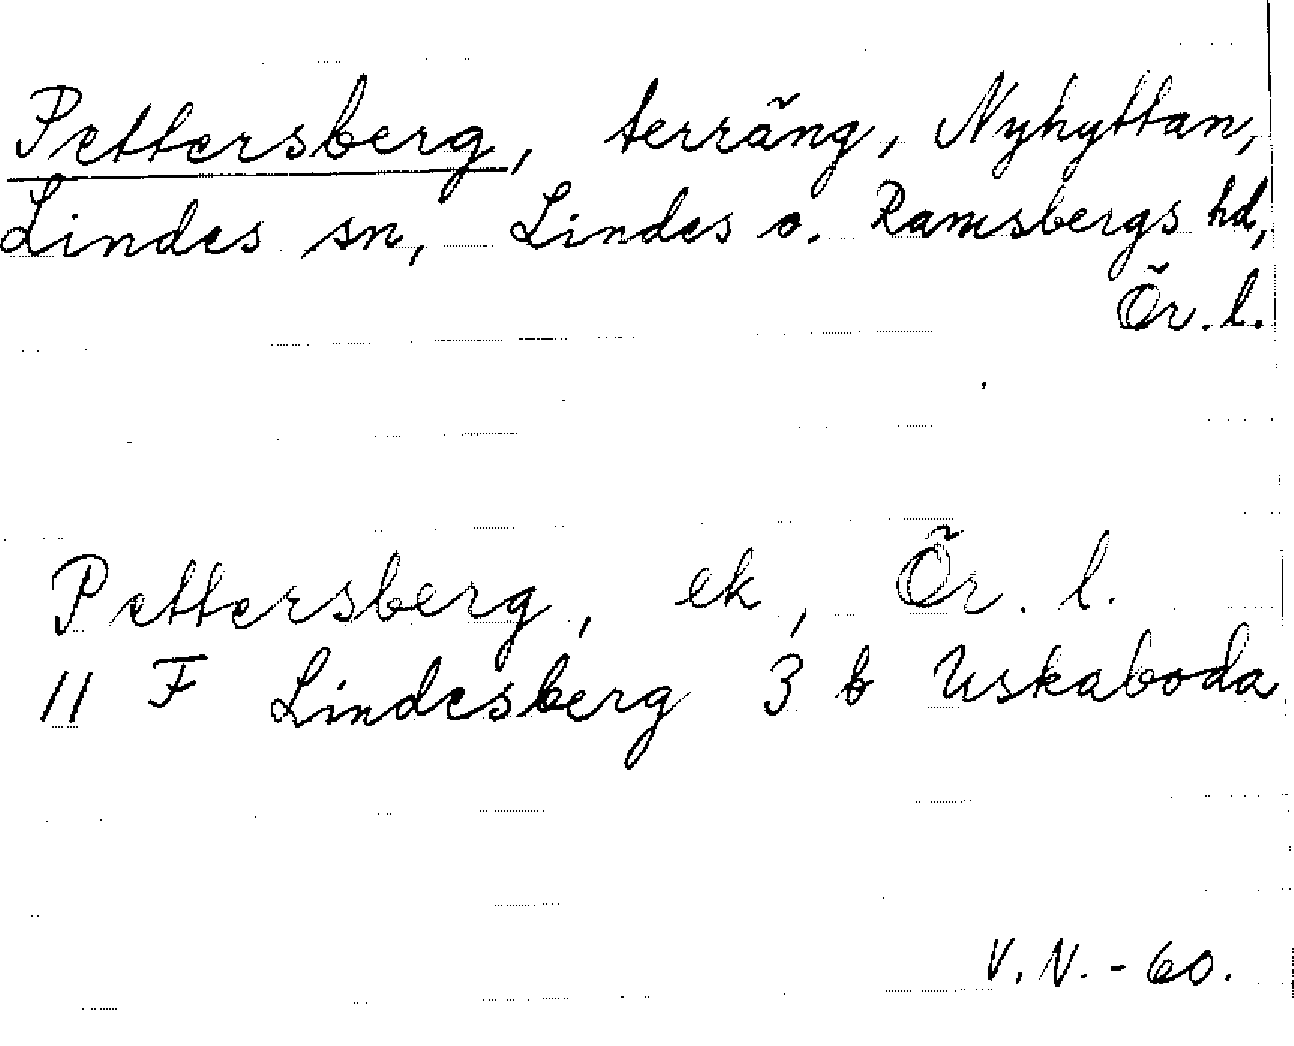 Pettersberg, terräng, Nyhyttan,
Lindes sn, Lindes o. Ramsbergs hd,
Ör. l.
Pettersberg, ek, Ör. l.
11 F Lindesberg 3 b Uskaboda
V. N. - 60.